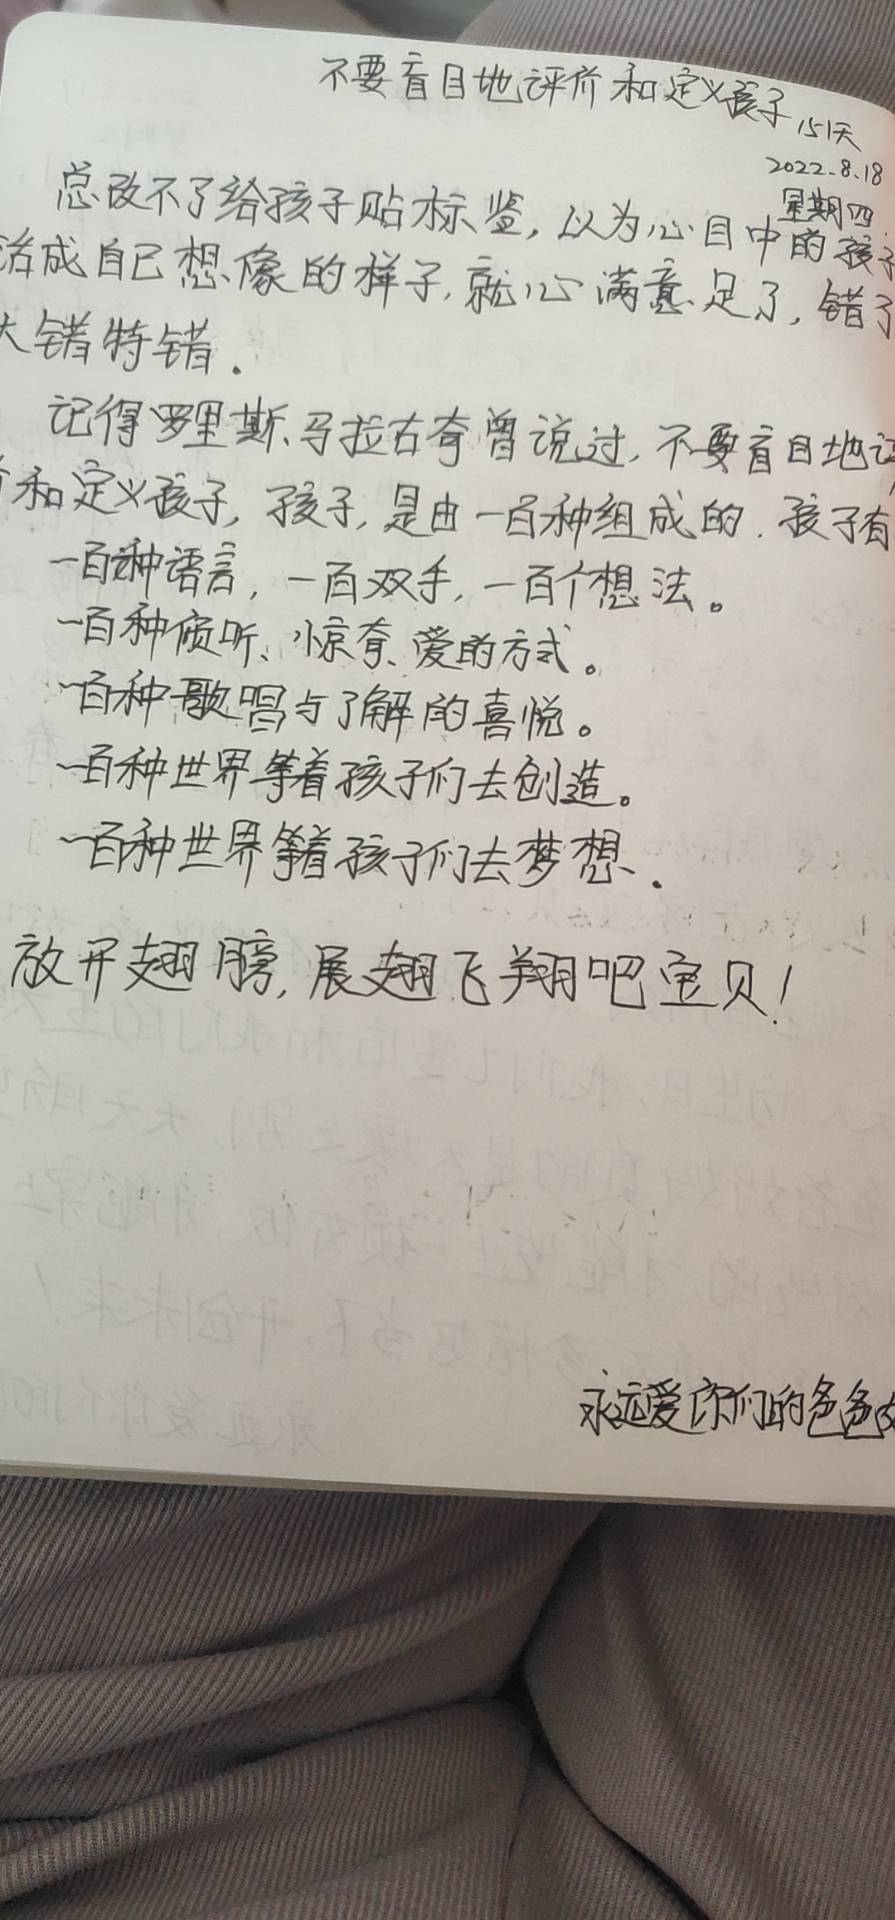 不要盲目地评价和定义孩子
151天
2022.8.18
星期四
总改不了给孩子贴标签,以为心目中的孩子
活成自己想像的样子,就心满意足了,错了
大错特错.
记得罗里斯、马拉古奇曾说过,不要盲目地评
价和定义孩子,孩子,是由一百种组成的.孩子有
一百种语言,一百双手,一百个想法。
一百种倾听、惊奇、爱的方式。
一百种歌唱与了解的喜悦。
一百种世界等着孩子们去创造。
一百种世界等着孩子们去梦想.
放开翅膀,展翅飞翔吧宝贝!
永远爱你们的爸爸